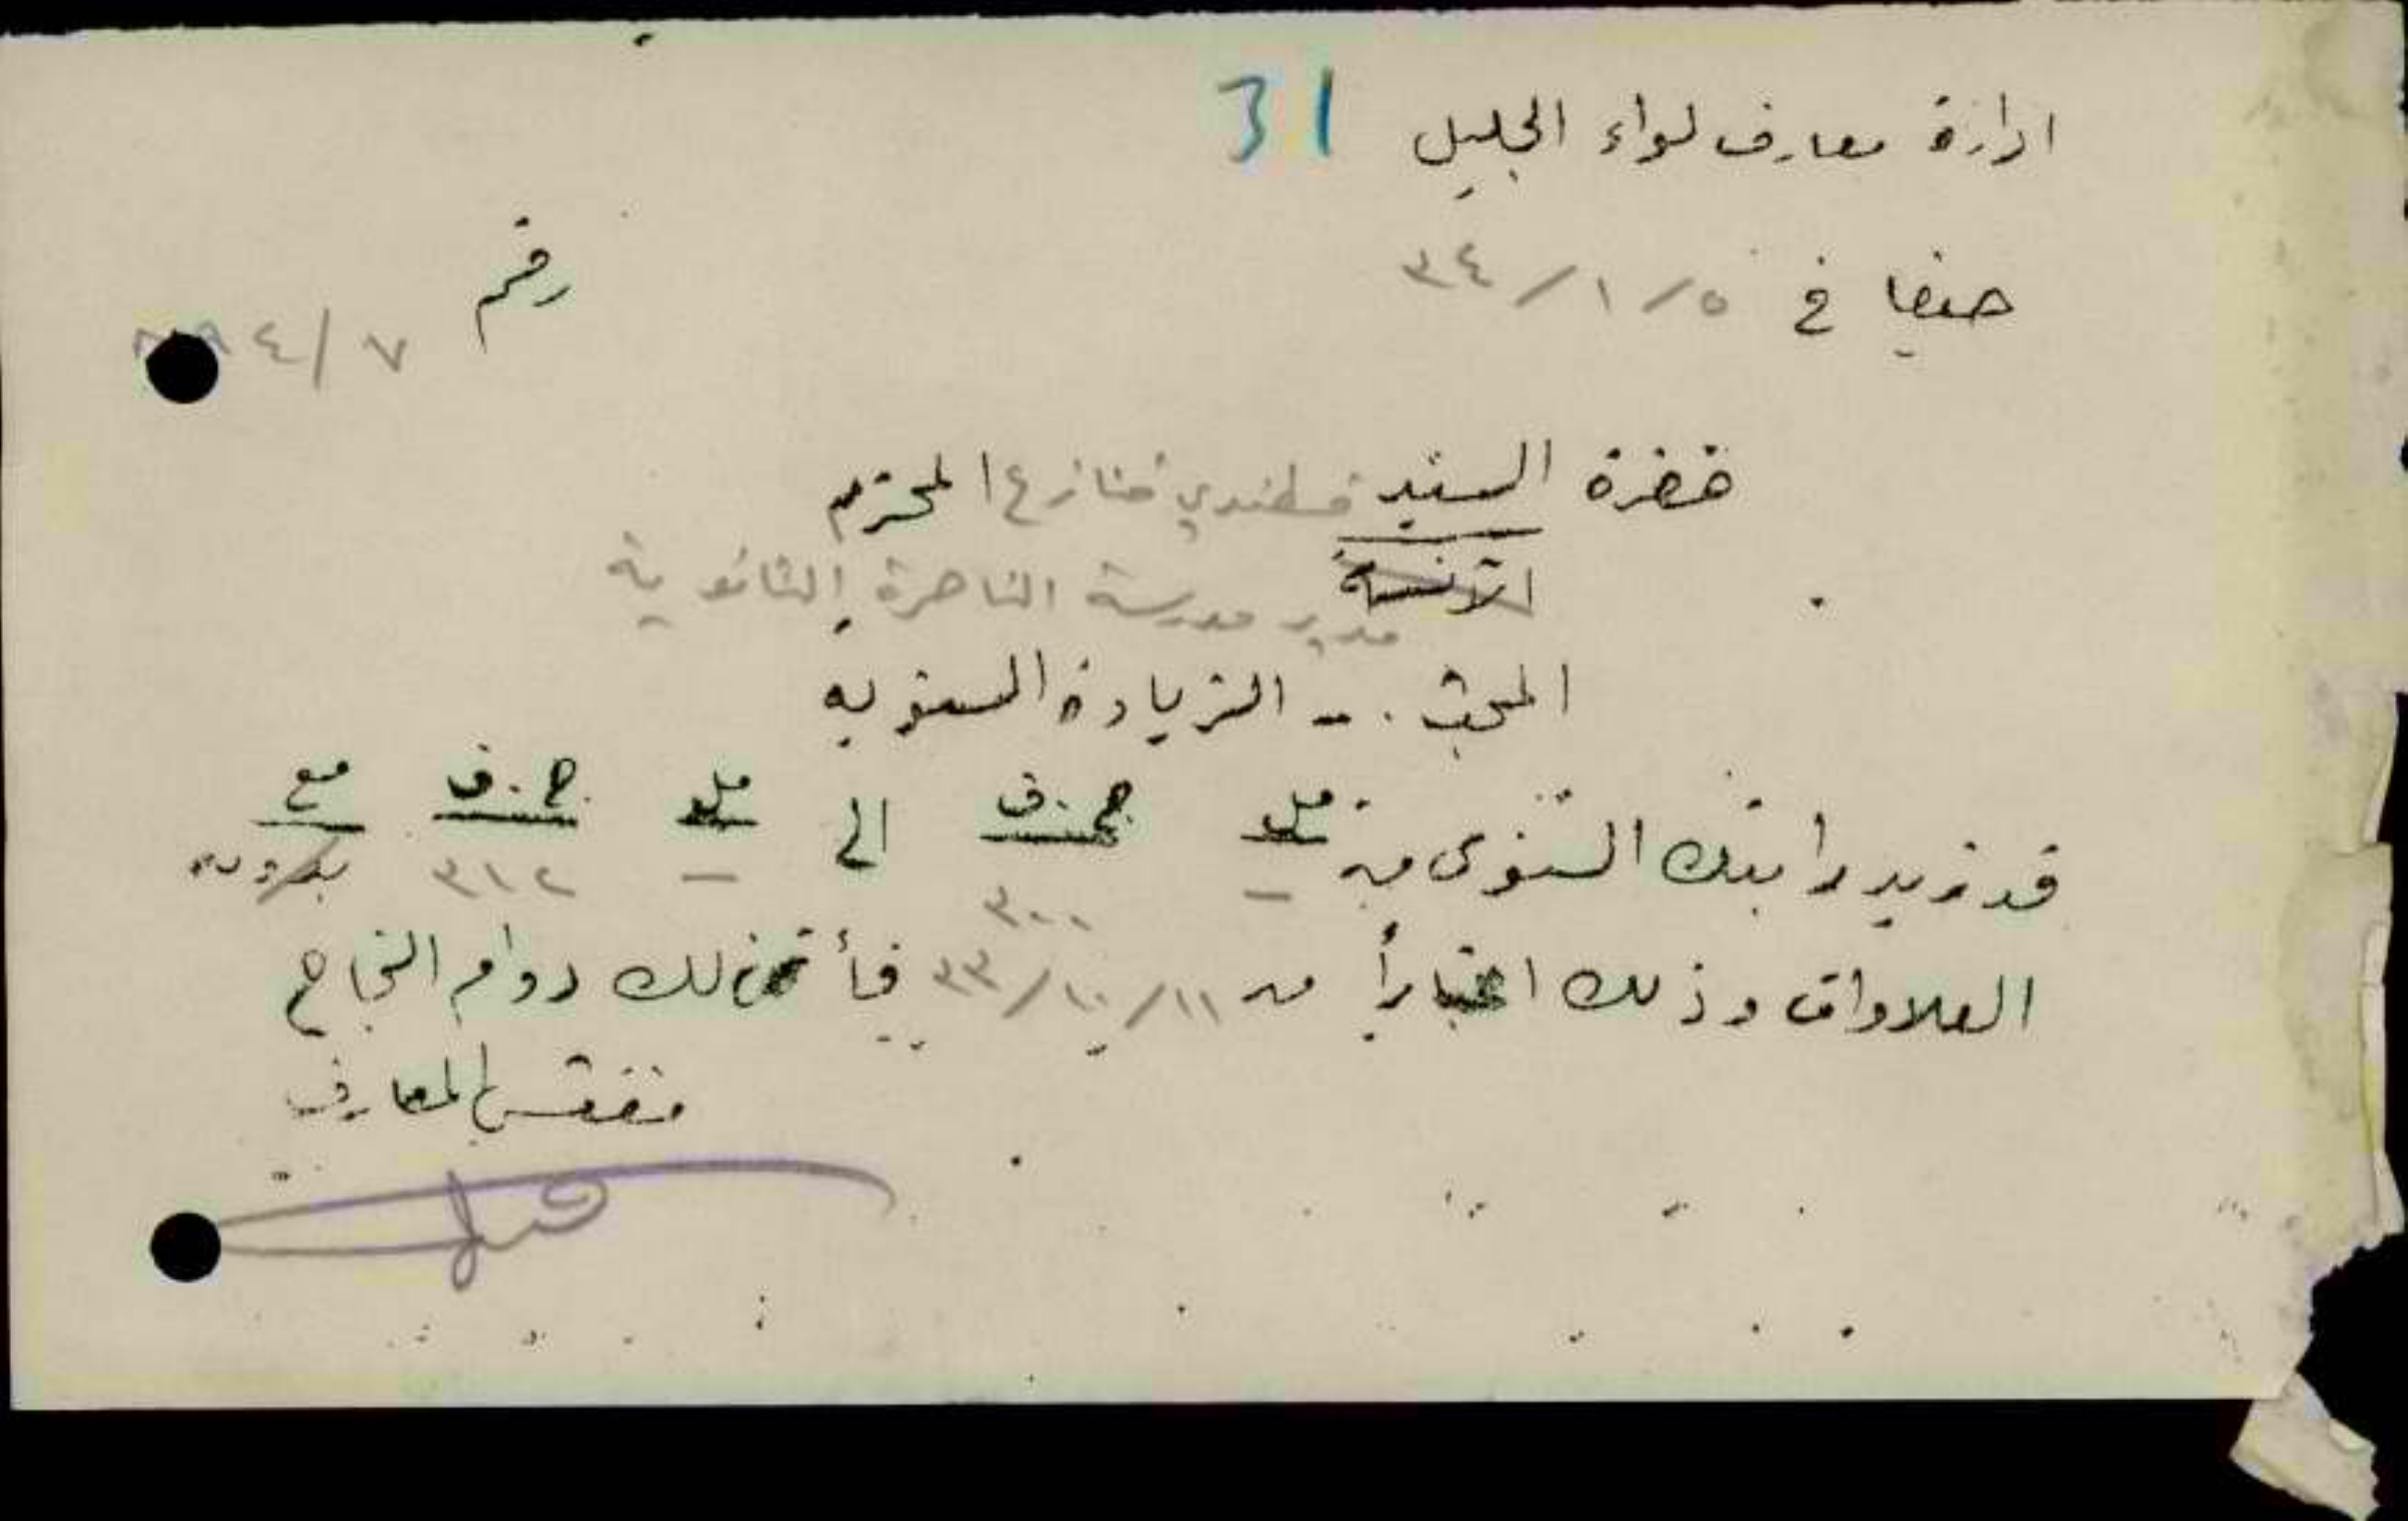 ادارة معارف لواء الجليل 31
حيفا في ٥/١/٣٤
رقم ٧/٤
حضرة السيد قسطندي قنازع المحترم
الآنسة
مدير مدرسة الناصرة الثانوية
المبحث .- الزيادة السنوية
قد زيد راتبك السنوى من مل ج.ف الى مل ج.ف مع
- ٣٠٠ - ٣١٢ بدون
العلاوات وذلك اعتباراً من ١١/١٠/٣٣ فأتمنى لك دوام النجاح
مفتش المعارف